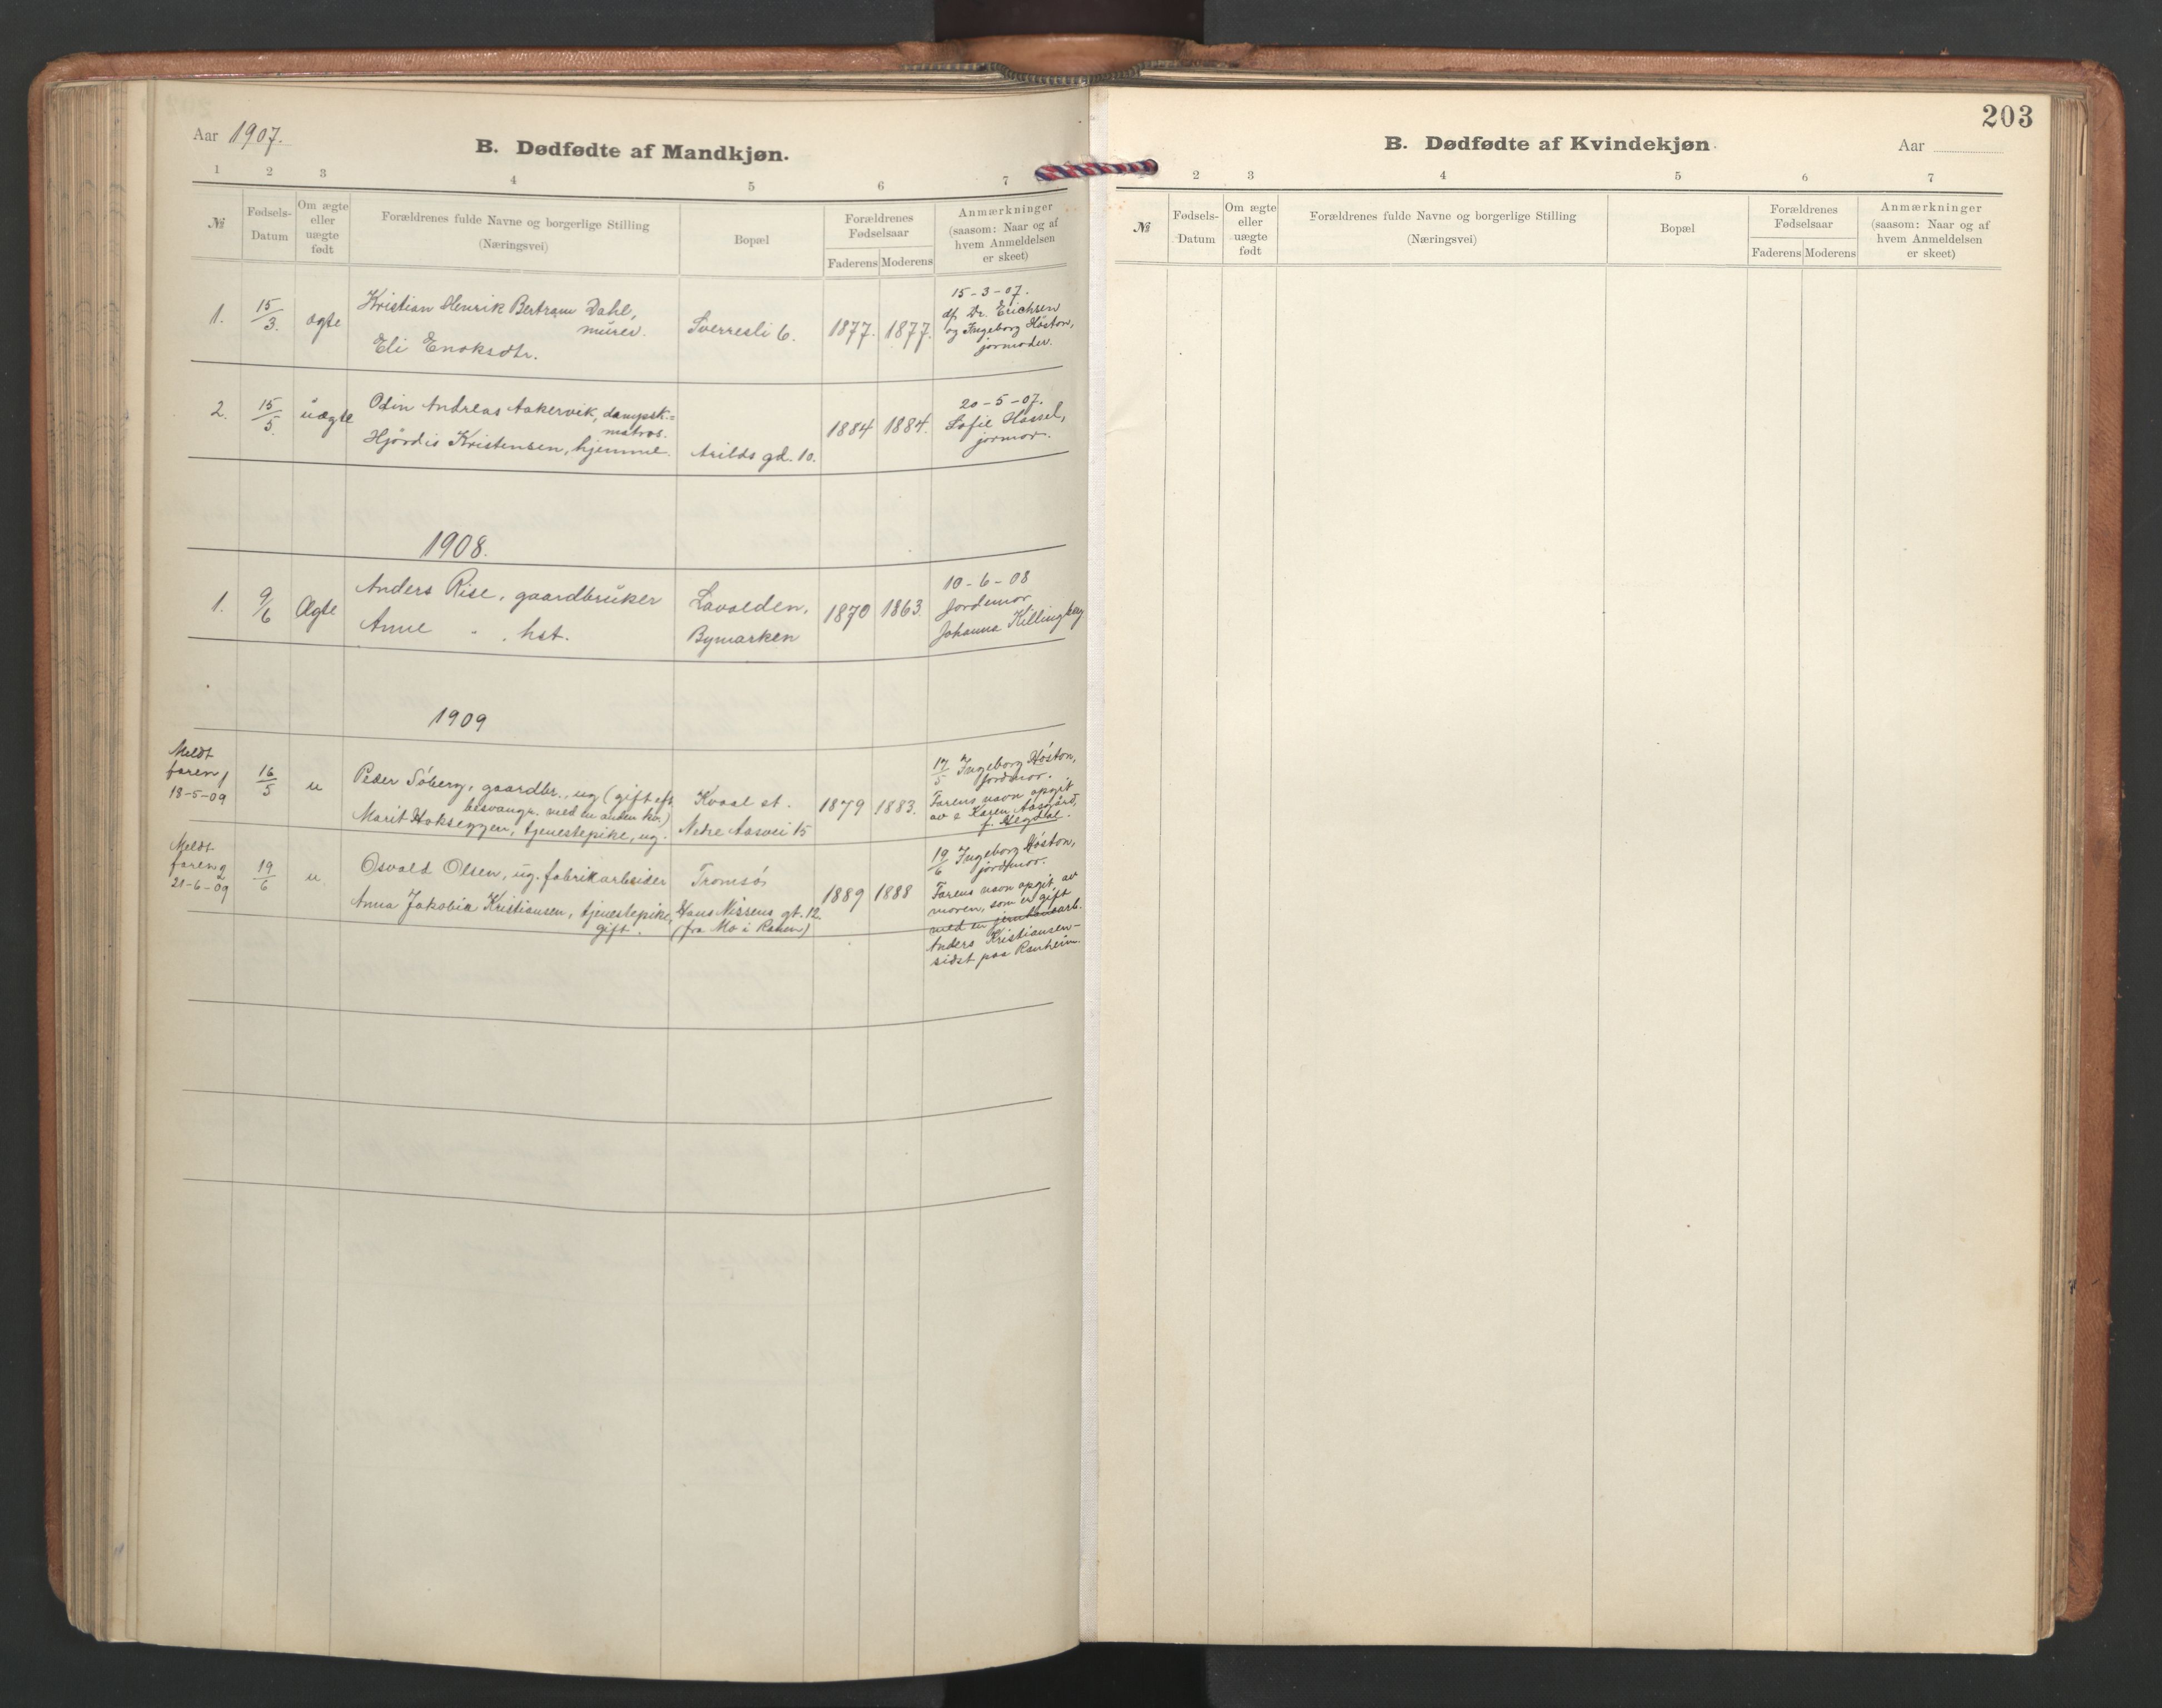 Aar 1907.
B. Dødfødte af Mandkjøn.
1 2 3 4 5 6 7
№
Fødsels-
Datum
Om ægte
eller
uægte
født
Forældrenes fulde Navne og borgerlige Stilling
(Næringsvei)
Bopæl
Forældrenes
Fødselsaar
Faderens Moderens
Anmærkninger
(saasom: Naar og af
hvem Anmeldelsen
er skeet)
1. 15/3. ægte
Kristian Henrik Bertram Dahl,
murer.
Eli Enoksdtr.
Sverresli 6.
1877. 1877.
15-3-07.
df. Dr. Erichsen
og Ingeborg Høston,
jormoder.
2. 15/5. uægte
Odin Andreas Aakervik, dampsk.=
matros.
Hjørdis Kristensen, hjemme.
Arilds gd. 10.
1884 1884.
20-5-07.
Sofie Hassel,
jormor.
1908.
1. 9/6 Ægte
Anders Rise, gaardbruker
Anne " . hst.
Lavolden,
Bymarken
1870 1863.
10-6-08
Jordemor
Johanna Killingberg
1909
Meldt
faren 1
18-5-09
16/5 u
Peder Søberg, gaardbr., ug (gift eft.
besvangr. med en anden kv.)
Marit Hokseggen, tjenestepike, ug.
Kvaal st.
Nedre Aasvei 15
1879 1883.
17/5 Ingeborg Høston,
jordmor.
Farens navn opgit
av 2 Karen Aasgård,
f. Hegdal.
Meldt
faren 2
21-6-09
19/6 u
Osvald Olsen, ug. fabrikarbeider
Anna Jakobia Kristiansen, tjenestepike,
gift.
Tromsø
Hans Nissens gt. 12.
(fra Mo i Ranen)
1889 1888
19/6 Ingeborg Høston,
jordmor.
Farens navn opgit av
moren, som er gift
med en jernbanearb.
Anders Kristiansen-
sidst paa Ranheim.
203
B. Dødfødte af Kvindekjøn.
Aar
2 3 4 5 6 7
№
Fødsels-
Datum
Om ægte
eller
uægte
født
Forældrenes fulde Navne og borgerlige Stilling
(Næringsvei)
Bopæl
Forældrenes
Fødselsaar
Faderens Moderens
Anmærkninger
(saasom: Naar og af
hvem Anmeldelsen
er skeet)